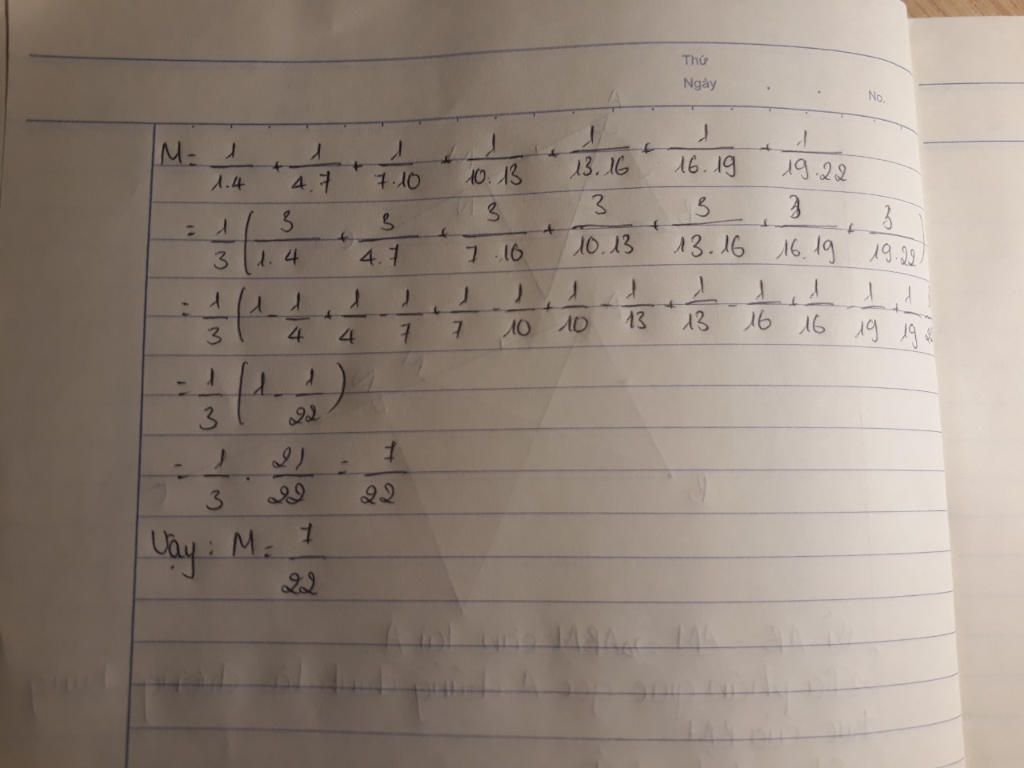 Thứ
Ngày . .
No.
M = 1/1.4 + 1/4.7 + 1/7.10 + 1/10.13 + 1/13.16 + 1/16.19 + 1/19.22
= 1/3 ( 3/1.4 + 3/4.7 + 3/7.10 + 3/10.13 + 3/13.16 + 3/16.19 + 3/19.22 )
= 1/3 ( 1 - 1/4 + 1/4 - 1/7 + 1/7 - 1/10 + 1/10 - 1/13 + 1/13 - 1/16 + 1/16 - 1/19 + 1/19
= 1/3 ( 1 - 1/22 )
= 1/3 . 21/22 = 7/22
Vậy : M = 7/22